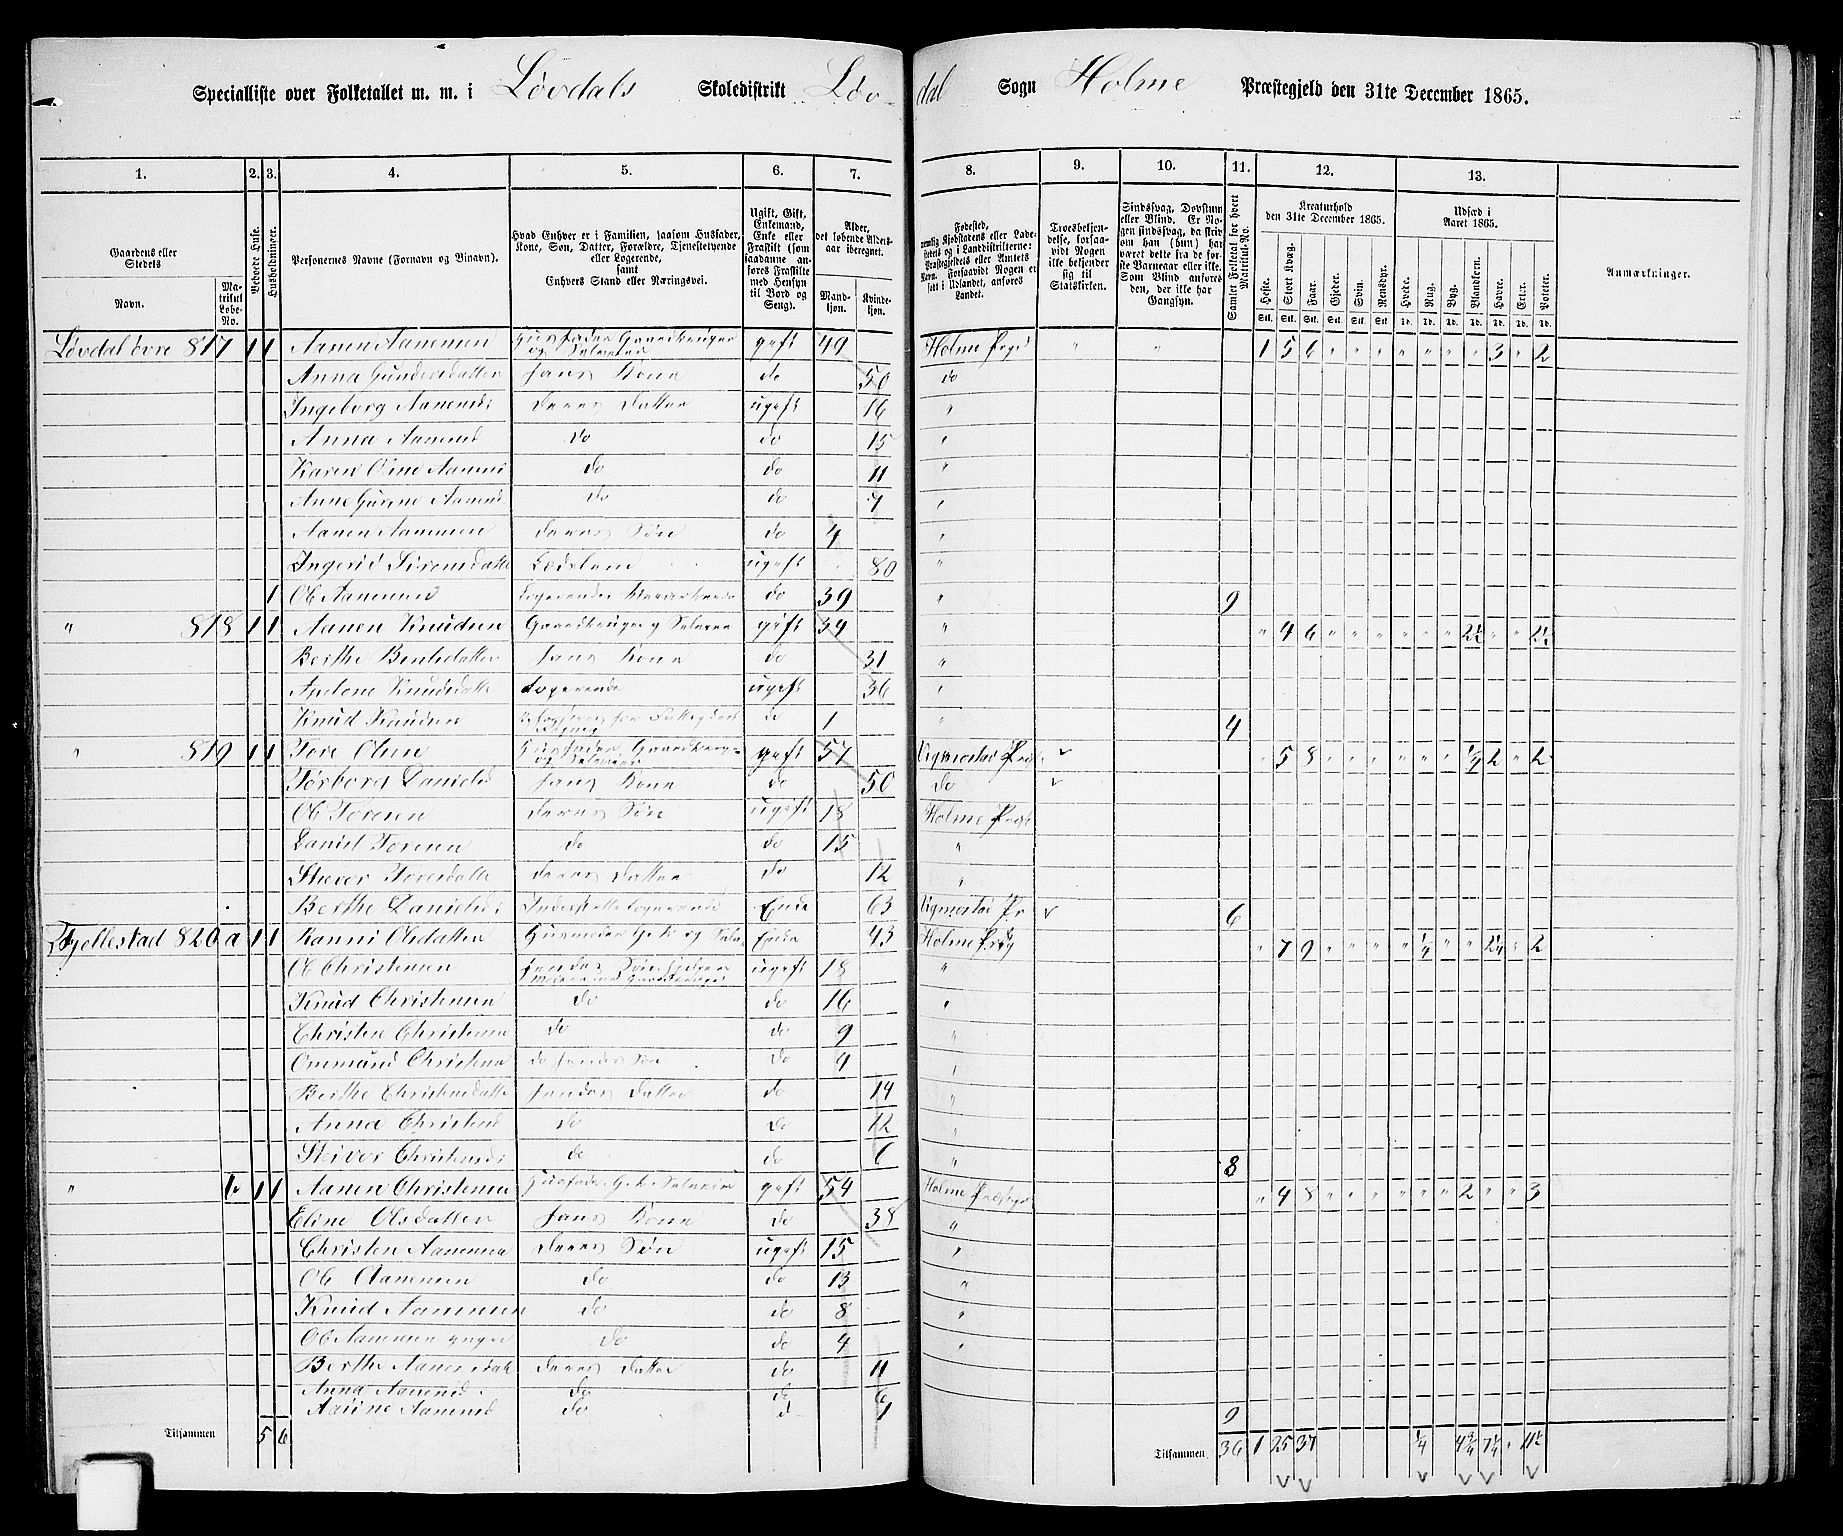 Specialliste over Folketallet m. m. i Løvdals Skoledistrikt Løv-dal Sogn Holme Præstegjeld den 31te December 1865.
1. 2. 3. 4. 5. 6. 7. 8. 9. 10. 11. 12. 13.
Gaardens eller Stedets Navn. Matrikul Løbe-No. Beboede Huse. Husholdninger. Personernes Navne (Fornavn og Tilnavn).
Hvad Enhver er i Familien, saasom Husfader, Kone, Søn, Datter, Forældre, Tjenestetyende eller Logerende, samt Enhvers Stand eller Næringsvei.
Ugift, Gift, Enkemand, Enke eller Fraskilt (saadanne anføres Fraskilte med Hensyn til Bord og Seng).
Alder, det løbende Aldersaar iberegnet. Mandkjøn. Kvindekjøn.
Fødested,
Troesbekjendelse, forsaavidt Nogen ikke bekjender sig til Statskirken.
Sindssvag, Døvstum eller Blind.
Samlet Folketal for hvert Matrikul-No.
Kreaturhold den 31te December 1865. Heste. Stort Kvæg. Faar. Gjeder. Svin. Rensdyr.
Udsæd i Aaret 1865. Hvede. Rug. Byg. Blandkorn. Havre. Erter. Poteter.
Anmærkninger.
Løvdal øvre 817 1 1 Aanen Aanensen Husfader Gaardbruger og Selveier gift 49 Holme Prgd " " 1 5 6 " " " " " " " 3 " 2
Anna Gundersdatter Hans Kone do 50 do
Ingeborg Aanensd Deres Datter ugift 16 "
Anna Aanensd do do 15 "
Karen Oline Aanensd do do 11 "
Anne Gurine Aanensd do do 7 "
Aanen Aanensen deres Søn do 4 "
Ingerid Sørensdatter ugift 80 "
1 Ole Aanensen Logerende do 39 " 9
" 818 1 1 Aanen Knudsen Gaardbruger og Selveier gift 34 " " 4 6 " " " " " " 2½ " " 2½
Berthe Bentsdatter Hans Kone do 31 "
Knudsdatter Logerende ugift 36 "
Knud Knudsen do 1 " 4
" 819 1 1 Tore Olsen Husfader, Gaardbruger og Selveier gift 57 Vigmostad Prgd " 5 8 " " " " " " ¼ 2 " 2
Torborg Danielsd Hans Kone do 50 do
Ole Toresen Deres Søn ugift 18 Holme Prgd
Daniel Toresen do do 15 "
Toresdatter deres Datter do 12 "
Berthe Danielsd Logerende Enke 63 Vigmostad Pr 6
Fjellestad 820 a 1 1 Olsdatter Husmoder G.b. og Selv. Enke 43 Holme Prgd " 7 9 " " " " ¼ " " 2¼ " 2
Ole Christensen Hendes Søn ugift 18 "
Knud Christensen do do 16 "
Christen Christensen do do 9 "
Ommund Christensen do Hendes Søn do 4 "
Berthe Christensdatter Hendes Datter do 14 "
Anna Christensd do do 12 "
Christensd do do 6 " 8
" b 1 1 Aanen Christensen Husfader G.b. Selveier gift 54 Holme Prgd " 4 8 " " " " " " 2 " " 3
Eline Olsdatter Hans Kone do 38 "
Christen Aanensen Deres Søn ugift 15 "
Ole Aanensen do do 13 "
Knud Aanensen do do 8 "
Ole Aanensen yngre do do 4 "
Berthe Aanensdatt deres Datter do 11
Anna Aanensd do do 6
Aanensd do d 4 9
Tilsammen 5 6 Tilsammen 36 1 25 37 ¼ 4¾ 7¼ " 11½